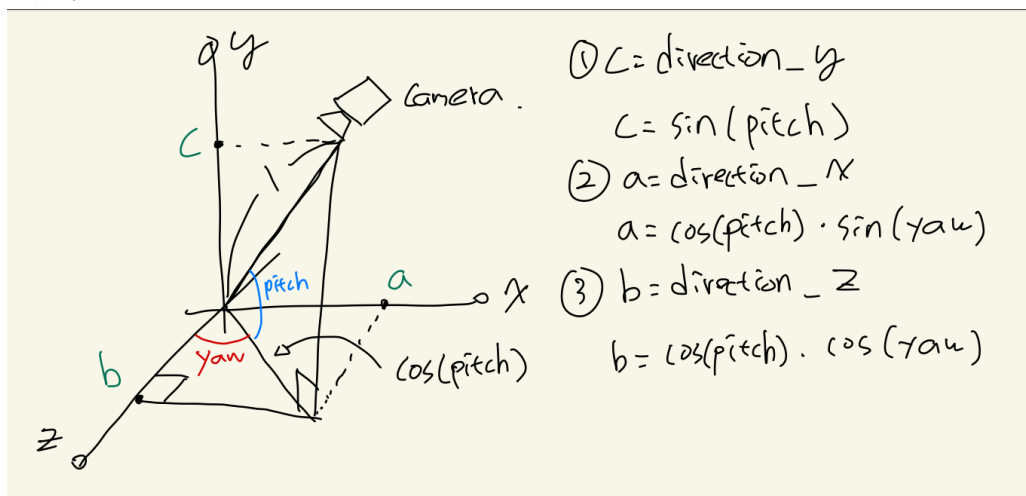 y
Camera.
C
pitch
a
x
yaw
cos(pitch)
b
z
① C = direction_y
C = sin(pitch)
② a = direction_x
a = cos(pitch) · sin(yaw)
③ b = direction_z
b = cos(pitch) · cos(yaw)